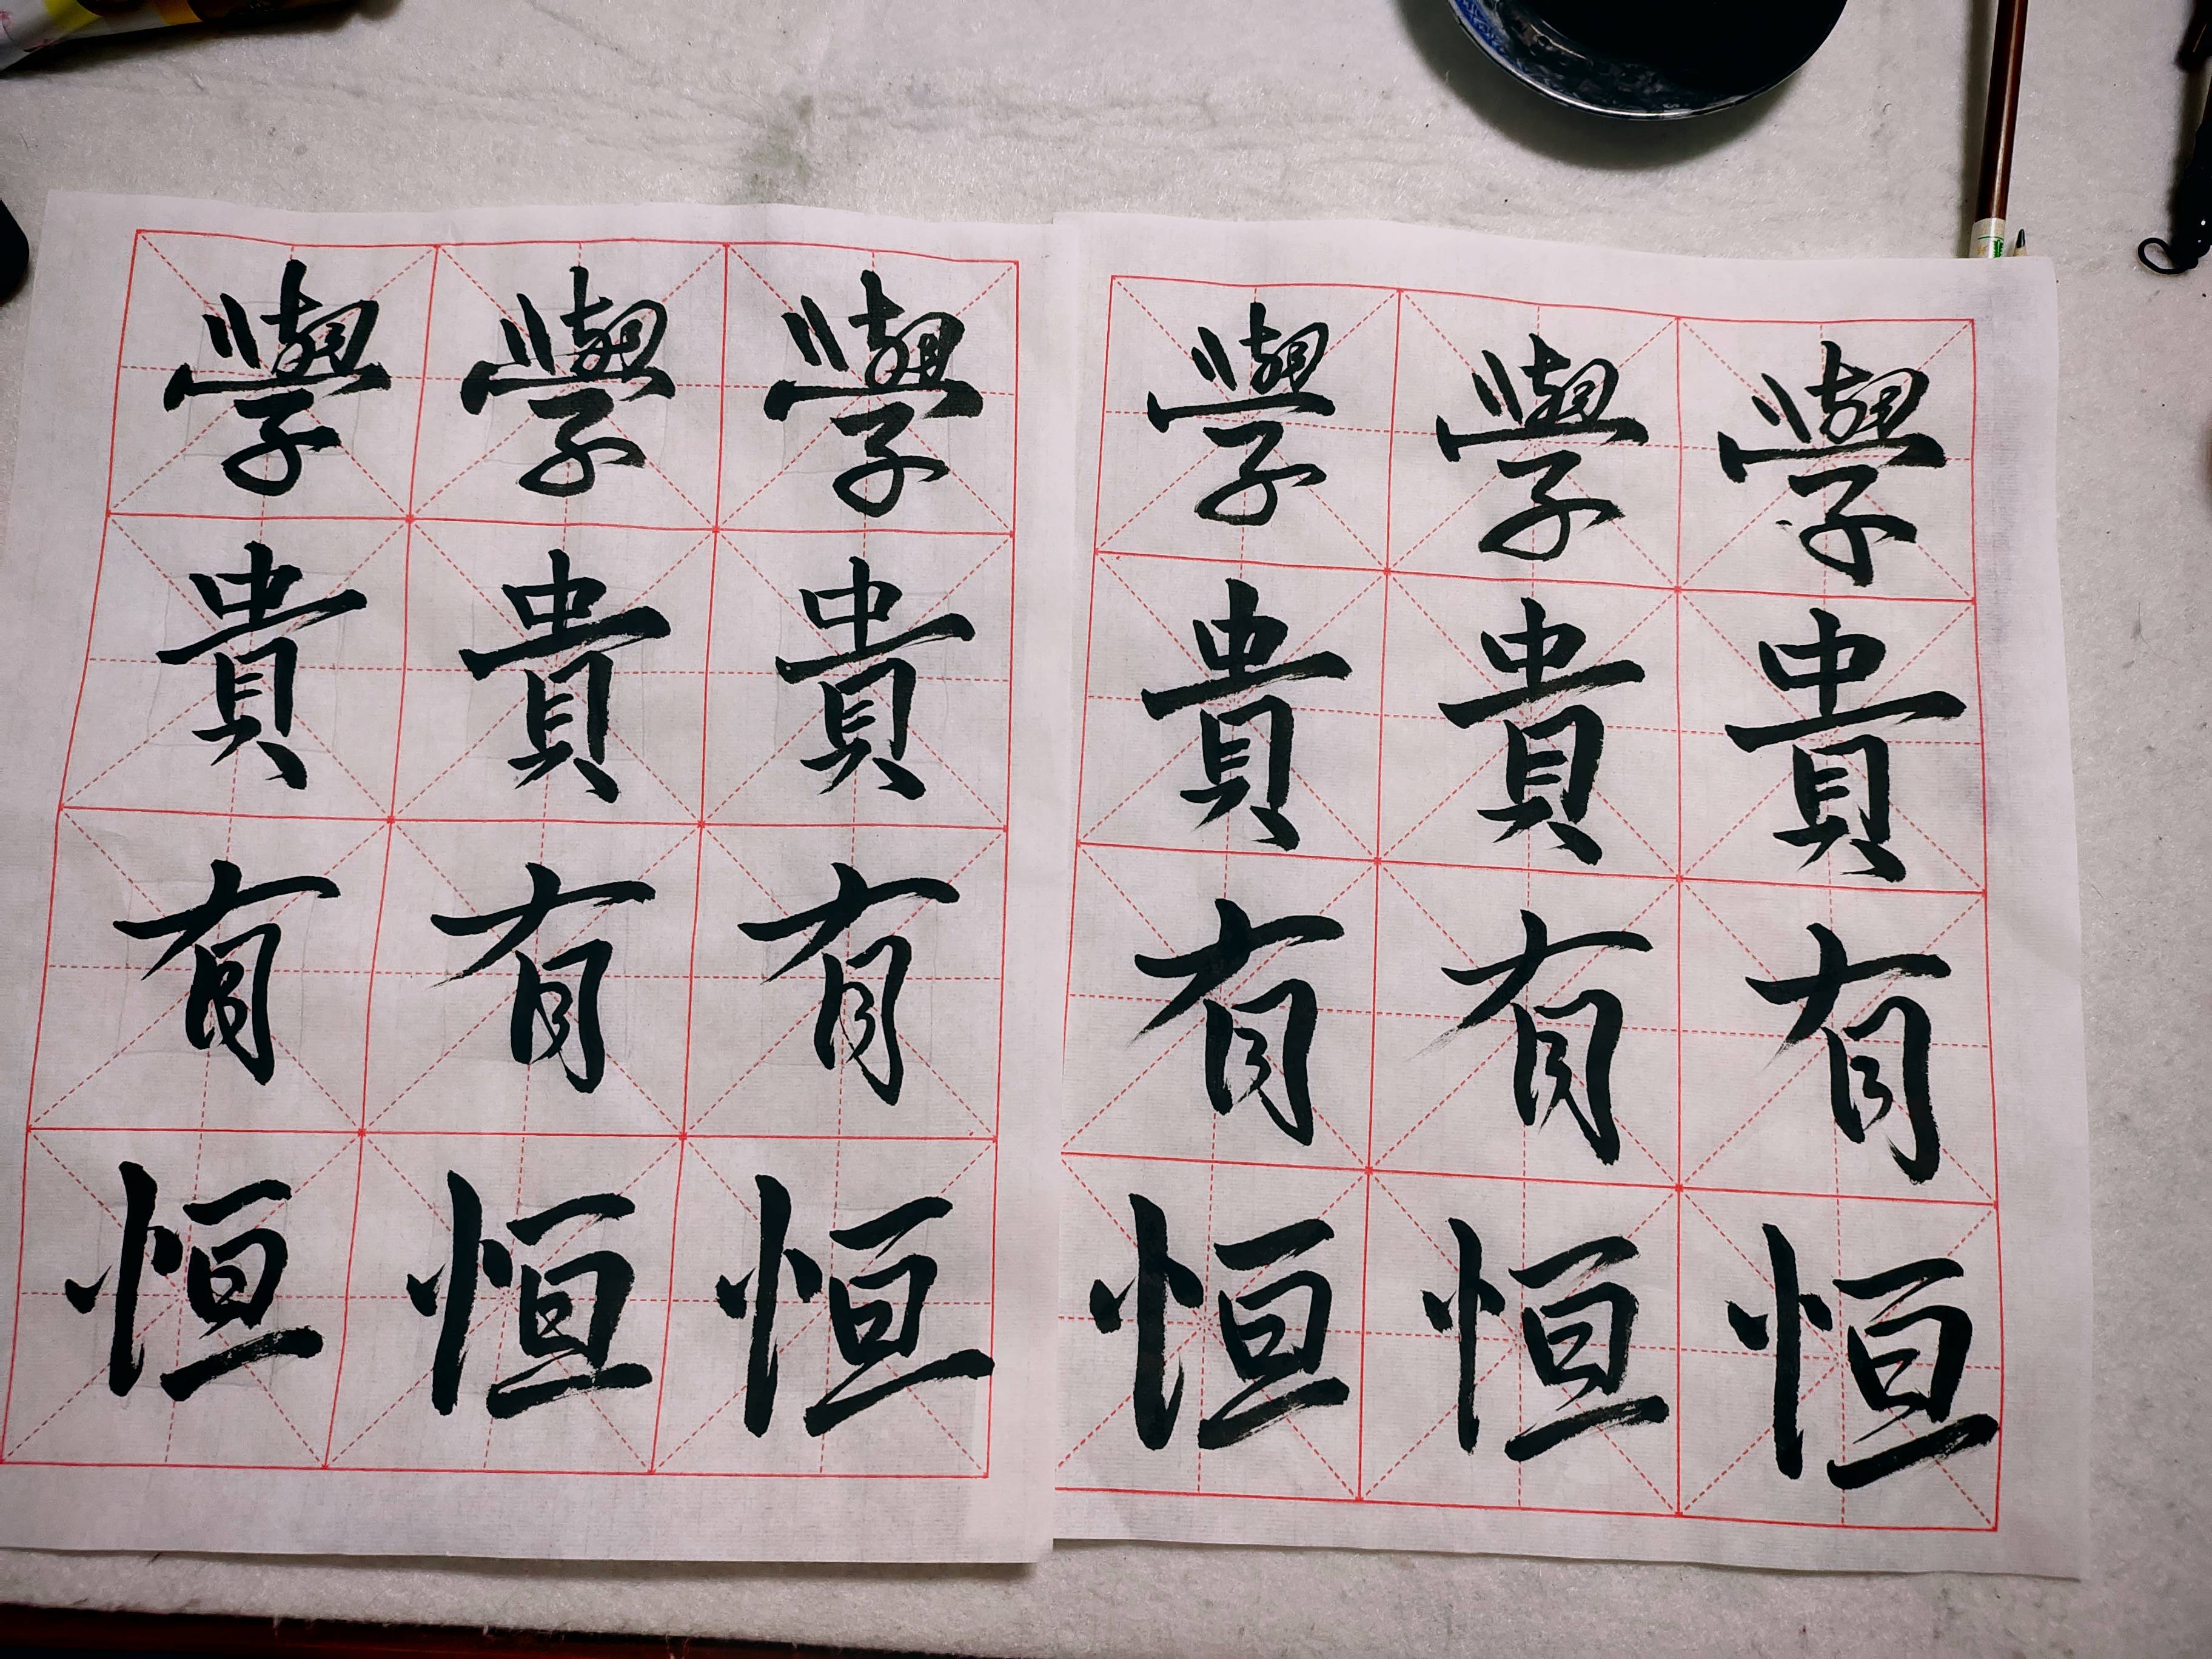 學貴有恒
學貴有恒
學貴有恒
學貴有恒
學貴有恒
學貴有恒